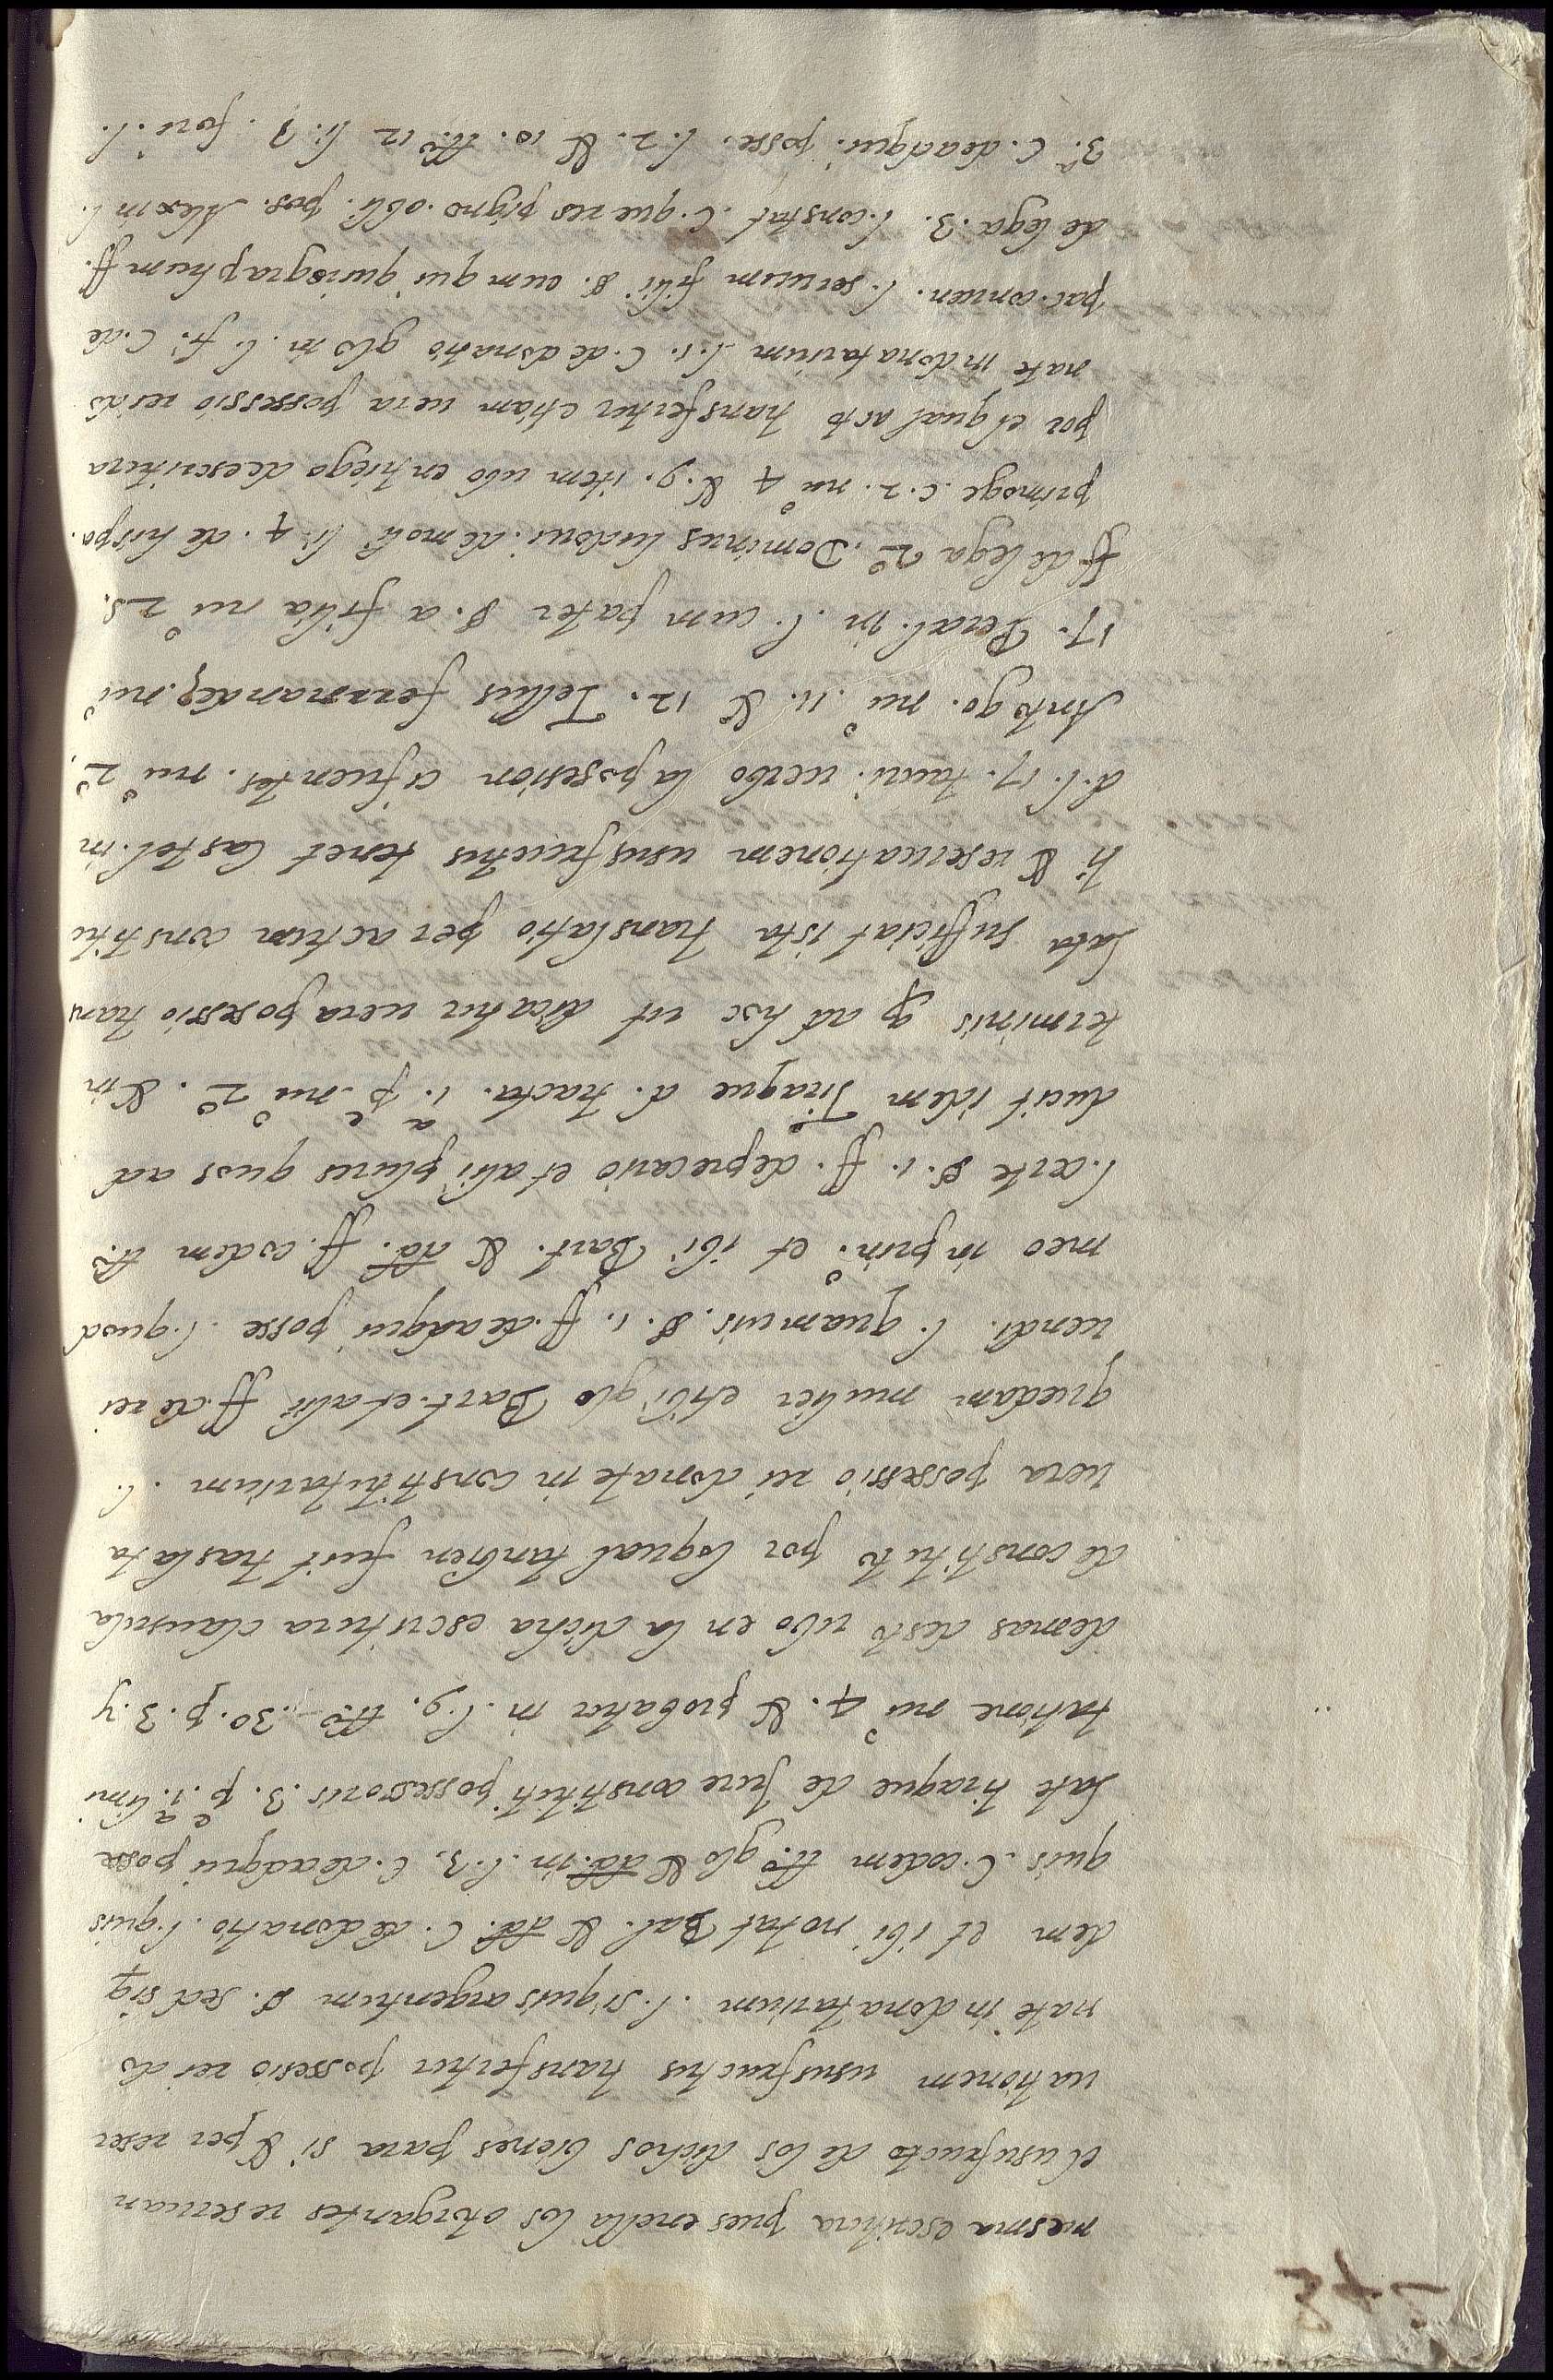 343
mesma escritura pues enella los otorgantes reseruan
el usufructo de los dichos bienes para si & per reser
uationem ususfructus transfertur possesio rei do
nate in donatarium . l. si quis argentum §. sed si q̃
dem et ibi notat Bal. & dd. C. de donatio. l. quis
quis . C. eodem tt.o glo & dd. in . l. 3. C. de adqui posse
late tiraque de jure constituti possessoris . 3. p.e 1.a limi
tatione nu.o 4. & probatur in . l. 9. tt.o 30. p. 3. y
demas desto ubo en la dicha escritura clausula
de constituto por loqual tanbien fuit traslata
uera possessio rei donate in constitutarium . l.
quedam mulier et ibi glo Bart. et alii ff. de rei
uendi. l. quamuis. §. 1. ff. de adqui posse . l. quod
meo in prin.o et ibi Bart. & dd. ff. eodem tt.o
l. certe §. 1. ff. de precario et alii plures quos ad
ducit idem Tiraque d. tracta. 1.a p.e nu.o 2.o . & in
terminis q ad hoc ut dicatur uera possessio tans
lata sufficiat ista translatio per actum constitu
ti & reseruationem ususfructus tenet Castel. in
d. l. 17. tauri. uerbo la posesion cifuentes. nu.o 2.o
Anto go. nu.o 11. & 12. Tellus fernandez. nu.o
17. Peral. in . l. cum pater §. a filia nu.o 28.
ff de lega 2.o Dominus ludoui. de moli li. 4 . de hispa.
primoge . c. 2. nu.o 4 & .9. item ubo entriego de escritura
por el qual acto transfertur etiam uera possessio rei do
nate in donatarium .l. 1. C. de donatio glo in . l. fi. C. de
pac. conuen. l. seruum filii §. eum qui quirographum ff.
de lega . 3. l. constat . C. que res pigno. obli. pos. Alex in l.
3.a C. de adqui. posse. l. 2. & 10. tt.o 12 li. 3 . fori . l.